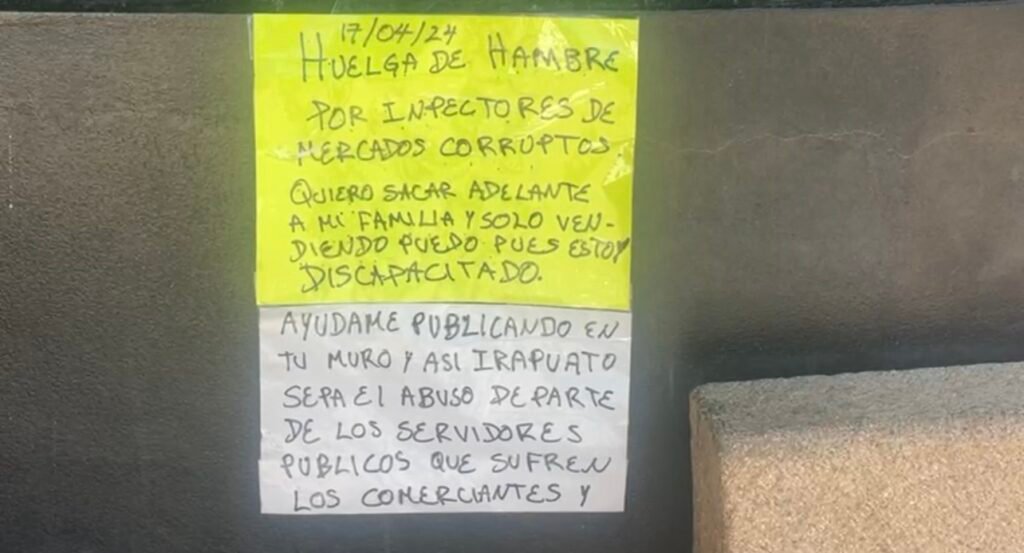 17/04/24
HUELGA DE HAMBRE
POR INPECTORES DE
MERCADOS CORRUPTOS
QUIERO SACAR ADELANTE
A MI FAMILIA Y SOLO VEN-
DIENDO PUEDO PUES ESTOY
DISCAPACITADO.
AYUDAME PUBLICANDO EN
TU MURO Y ASI IRAPUATO
SEPA El ABUSO DE PARTE
DE LOS SERVIDORES
PUBLICOS QUE SUFREN
LOS COMERCIANTES Y